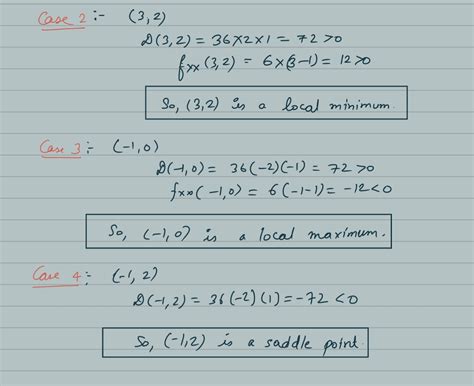 Case 2 :- (3,2)
D(3,2) = 36×2×1 = 72 >0
fxx (3,2) = 6×(3-1) = 12 >0
So, (3,2) is a local minimum.
Case 3 :- (-1,0)
D(-1,0) = 36(-2)(-1) = 72 >0
fxx(-1,0) = 6(-1-1) = -12 <0
So, (-1,0) is a local maximum.
Case 4 :- (-1, 2)
D(-1,2) = 36(-2)(1) = -72 <0
So, (-1,2) is a saddle point.